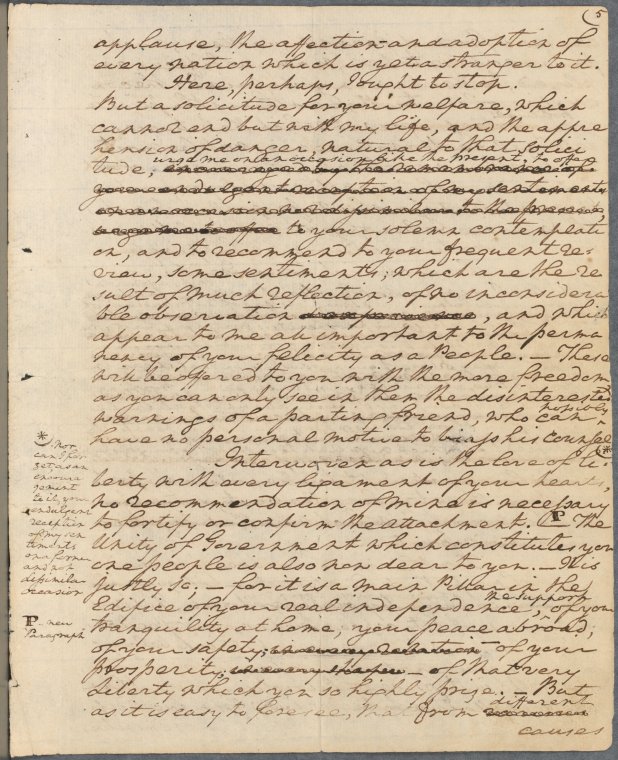 5
applause, the affection and adoption of
every nation which is yet a stranger to it.
Here, perhaps, I ought to stop.
But a solicitude for your welfare, which
cannot end but with my life, and the appre
hension of danger, natural to that solici
urge me on an occasion like the present, to offer
tude, encouraged by the remembrance of
your indulgent reception of my sentiments
on an occasion not dissimilar to the present,
urge me to offer to your solemn contemplati
on, and to recommend to your frequent re-
view, some sentiments; which are the re
sult of much reflection, of no inconsidera
ble observation, and which
appear to me all important to the perma
nency of your felicity as a People. — These
will be offered to you with the more freedom
as you can only see in them the disinterested
warnings of a parting friend, who can
possibly
have no personal motive to biass his counsel
(*
Interwoven as is the love of li-
berty with every ligament of your hearts,
no recommendation of mine is necessary
to fortify or confirm the attachment. P The
Unity of Government which constitutes you
one people is also now dear to you. — It is
justly so; — for it is a main Pillar in the
Edifice of your real independence,
the support
of your
tranquility at home, your peace abroad;
of your safety; in every relation of your
prosperity, in every shape — of that very
Liberty which you so highly prize. — But
as it is easy to foresee, that from
different
causes
*
nor
can I for
get, as an
encoura
gement
to it, your
endulgent
reception
of my sen
timents
on a former
and not
dissimilar
occasion
P. new
Paragraph